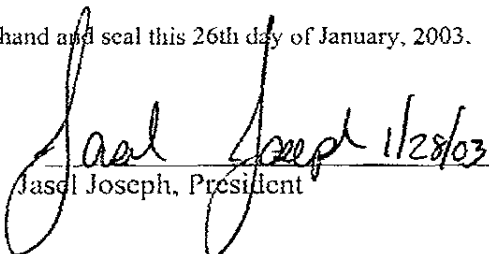 hand and seal this 26th day of January, 2003.
Jasel Joseph 1/28/03
Jasel Joseph, President